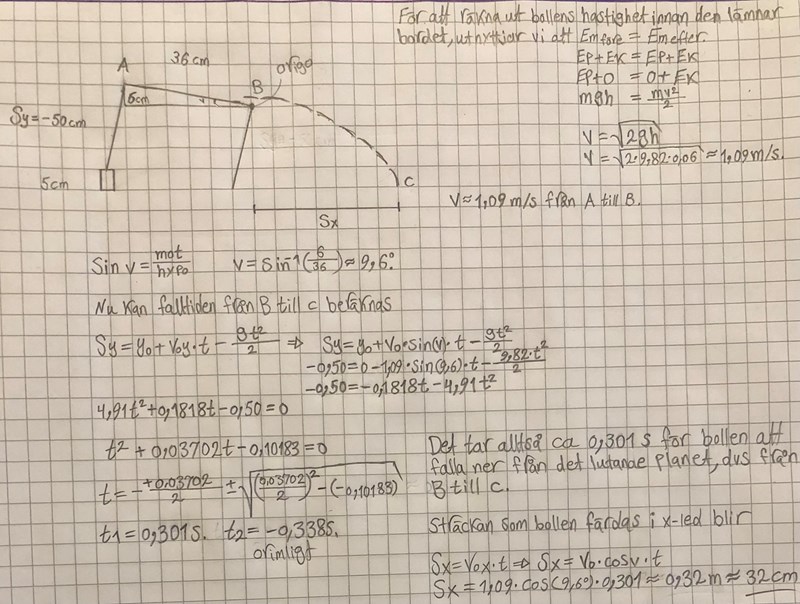 För att räkna ut bollens hastighet innan den lämnar
bordet, utnyttjar vi att Emföre = Emefter.
Ep+Ek = Ep+Ek
Ep+0 = 0+Ek
mgh = mv²/2
v = √2gh
v = √2·9,82·0,06 ≈ 1,09m/s.
V≈1,09 m/s från A till B.
A
36cm
origo
B
6cm
Sy=-50cm
5cm
C
Sx
Sin v = mot/hypo   V = sin⁻¹(6/36) ≈ 9,6°.
Nu kan falltiden från B till C beräknas
Sy = y₀ + v₀y·t - gt²/2 ⇒ Sy = y₀ + v₀·sin(v)·t - gt²/2
-0,50 = 0 - 1,09·sin(9,6)·t - 9,82·t²/2
-0,50 = -0,1818t - 4,91t²
4,91t² + 0,1818t - 0,50 = 0
t² + 0,03702t - 0,10183 = 0
t = - +0,03702/2 ± √(0,03702/2)² - (-0,10183)
t1 = 0,301s.   t2 = -0,338s.
orimligt
Det tar alltså ca 0,301 s för bollen att
falla ner från det lutande planet, dvs från
B till C.
Sträckan som bollen färdas i x-led blir
Sx = v₀x·t ⇒ Sx = v₀·cosv·t
Sx = 1,09·cos(9,6°)·0,301 ≈ 0,32m ≈ 32cm